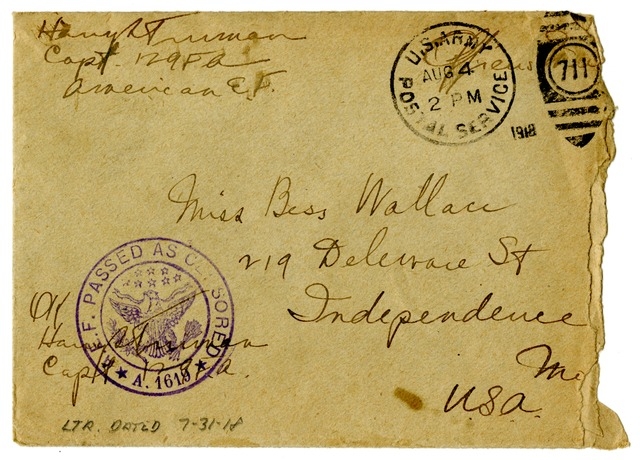 Harry S Truman
Capt. 129 F.A.
American E.F.
Officers
U.S. ARMY
POSTAL SERVICE
AUG 4
2 PM
1918
711
Miss Bess Wallace
219 Deleware St
Independence
Mo
U.S.A.
A.E.F. PASSED AS CENSORED
A. 1619
OK
Harry S Truman
Capt 129 F.A.
LTR. DATED 7-31-18